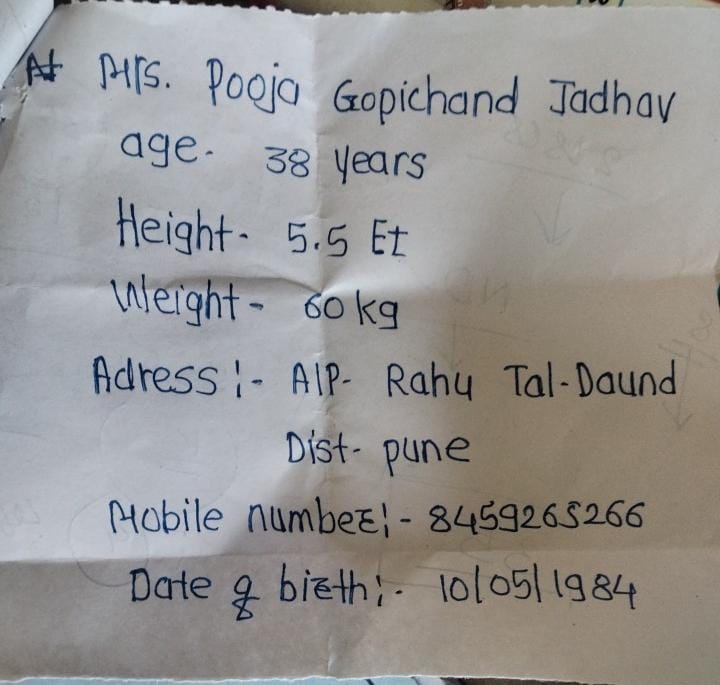 At Mrs. Pooja Gopichand Jadhav
age- 38 years
Height- 5.5 Ft
Weight- 60 kg
Adress :- A/P- Rahu Tal-Daund
Dist- pune
Mobile number:- 8459265266
Date of birth:- 10/05/1984